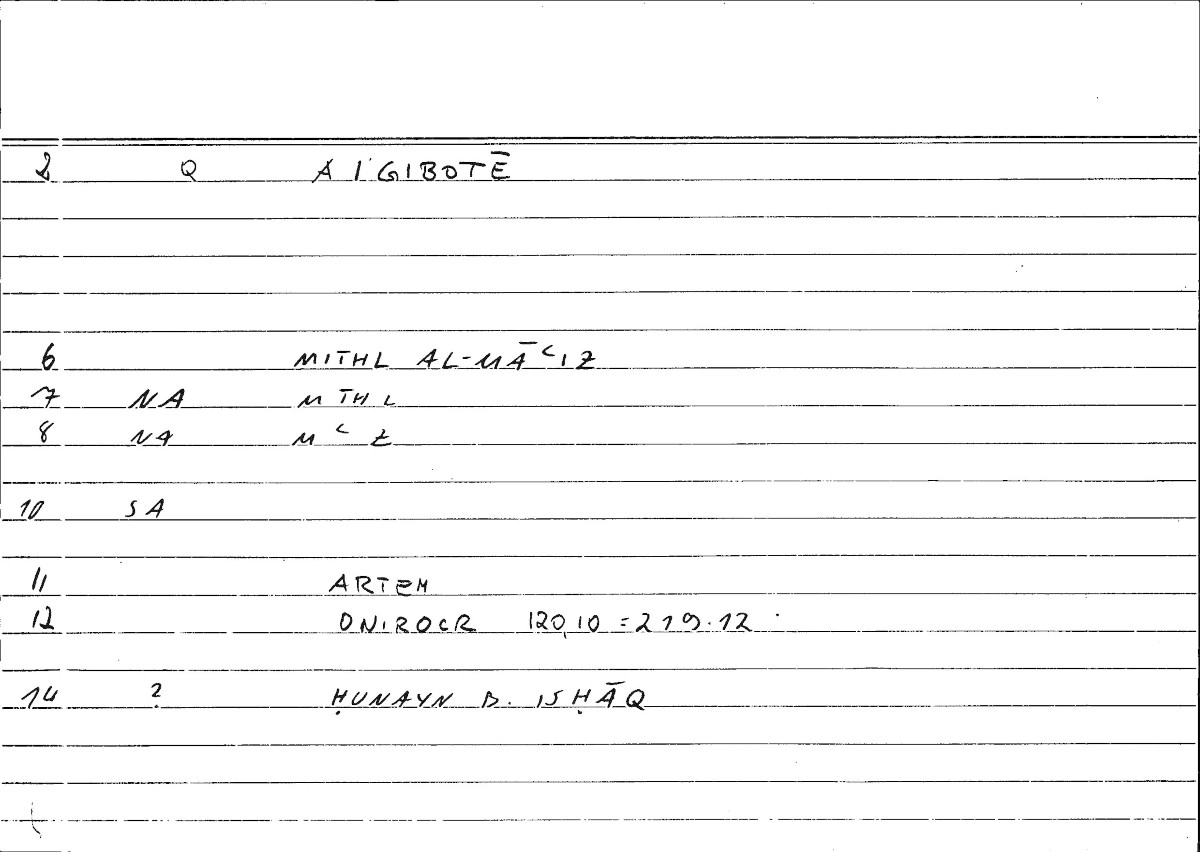 2 Q AI'GIBOTĒ
6 MITHL AL-MĀʿIZ
7 NA MTHL
8 NA MʿZ
10 SA
11 ARTEM
12 ONIROCR 120,10 = 219.12
14 ? ḤUNAYN B. ISḤĀQ